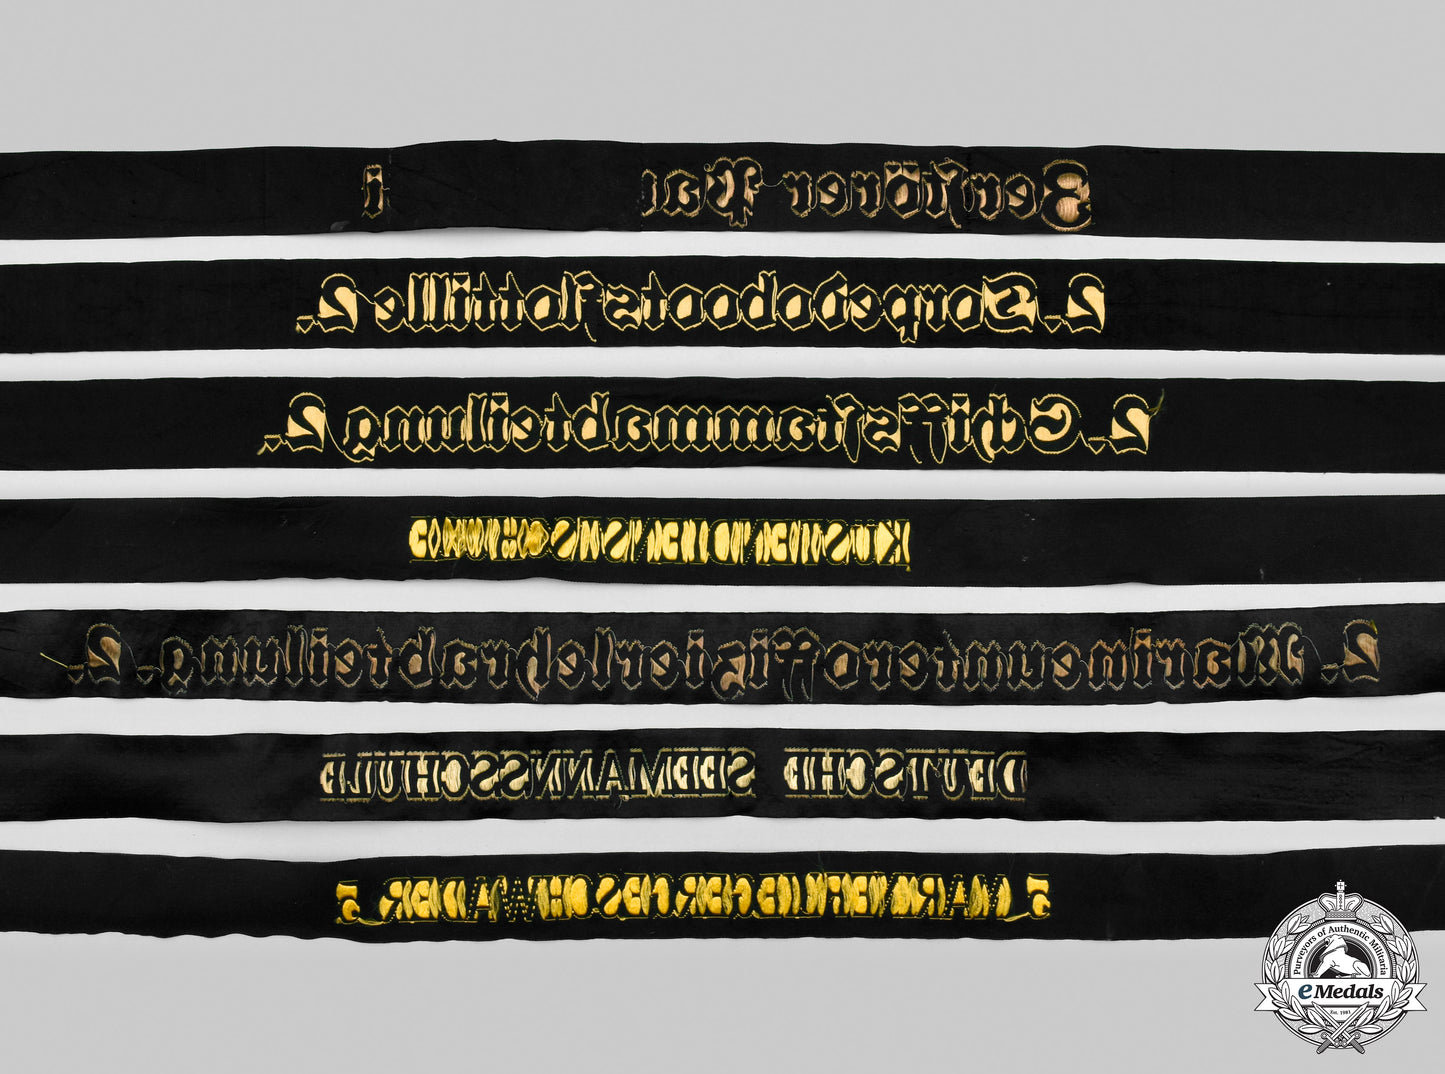 Zerstörer Pau i
2. Torpedobootsflottille 2.
2. Schiffsſtammabteilung 2.
2. Marineunteroffizierlehrabteilung. 2.
DEUTSCHE SEEMANNSSCHULE
5. MARINEFLIEGERGESCHWADER 5.
Purveyors of Authentic Militaria
eMedals
Est. 1981